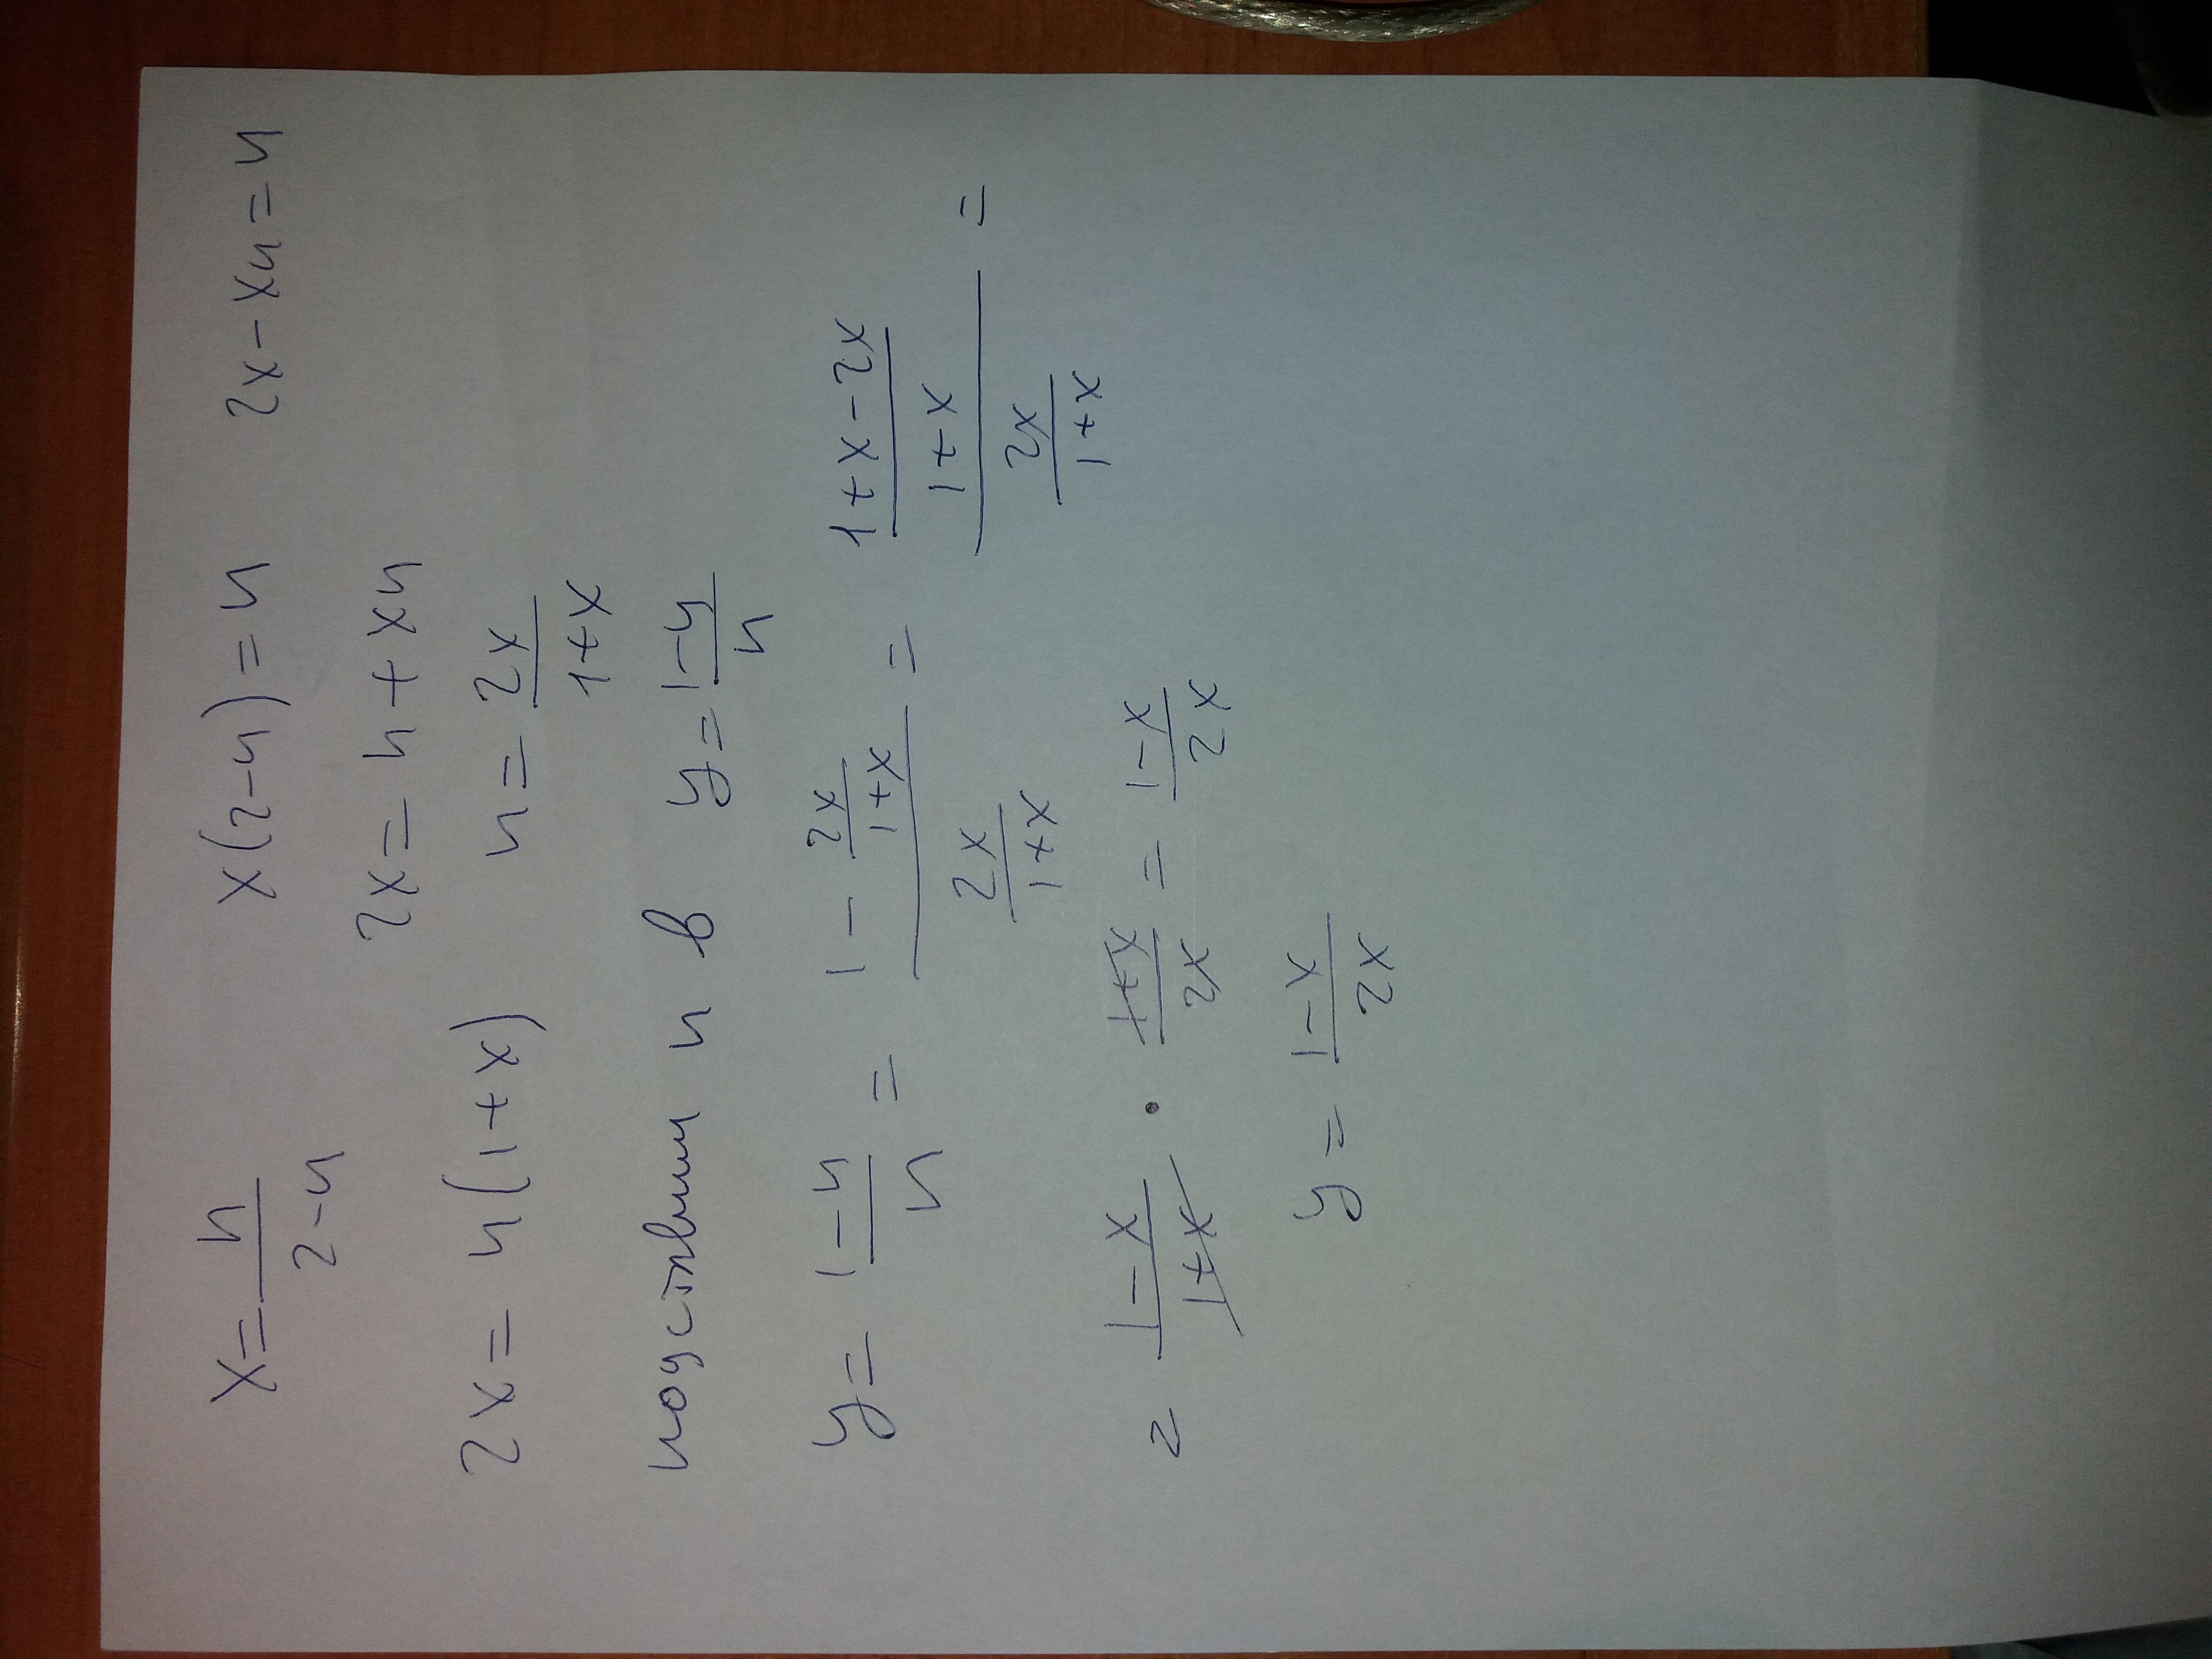 x = n/(2-n)   x(2-n) = n   2x - xn = n
2x = n + xn
2x = n(1+x)   n = 2x/(1+x)
подставим n в   y = (1-n)/n
y = (1-n)/n = (1 - 2x/(1+x))/(2x/(1+x)) = ((1+x-2x)/(1+x))/(2x/(1+x)) =
= (1-x)/(1+x) · (1+x)/(2x) = (1-x)/(2x)
y = (1-x)/(2x)